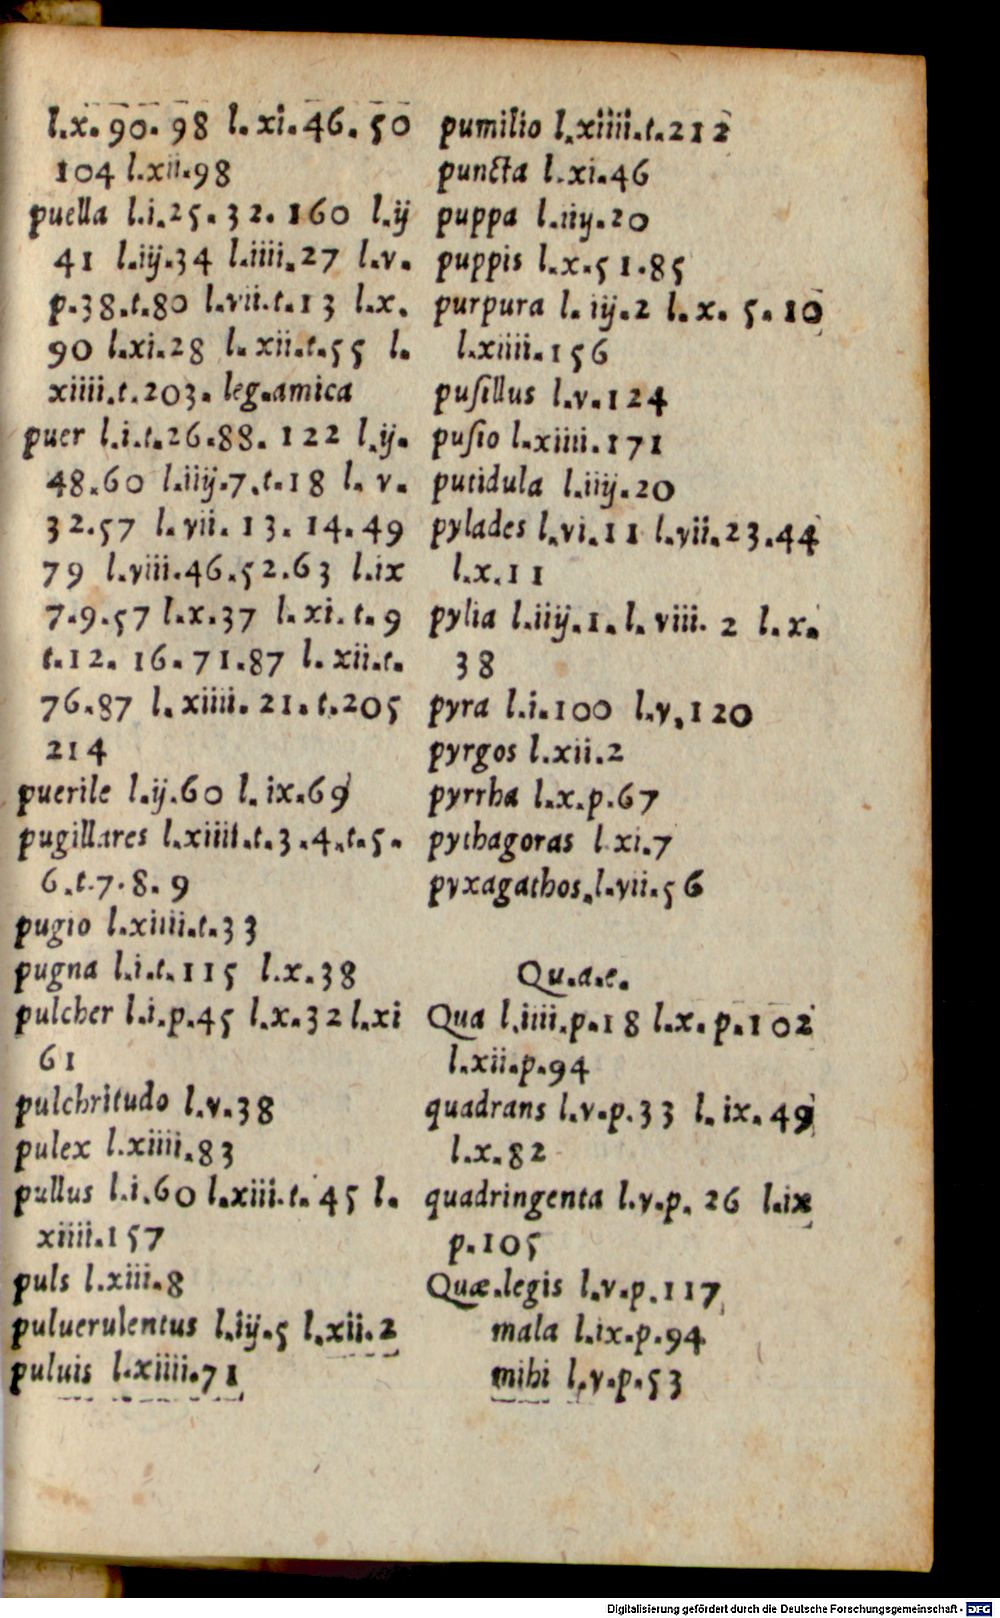 l.x.90.98 l.xi.46.50
104 l.xii.98
puella l.i.25.32.160 l.ij
41 l.iij.34 l.iiii.27 l.v.
p.38.t.80 l.vii.t.13 l.x.
90 l.xi.28 l.xii.t.55 l.
xiiii.t.203. leg.amica
puer l.i.t.26.88.122 l.ij.
48.60 l.iiij.7.t.18 l.v.
32.57 l.vii.13.14.49
79 l.viii.46.52.63 l.ix
7.9.57 l.x.37 l.xi.t.9
t.12.16.71.87 l.xii.t.
76.87 l.xiiii.21.t.205
214
puerile l.ij.60 l.ix.69
pugillares l.xiiii.t.3.4.t.5.
6.t.7.8.9
pugio l.xiiii.t.33
pugna l.i.t.115 l.x.38
pulcher l.i.p.45 l.x.32 l.xi
61
pulchritudo l.v.38
pulex l.xiiii.83
pullus l.i.60 l.xiii.t.45 l.
xiiii.157
puls l.xiii.8
puluerulentus l.iij.5 l.xii.2
puluis l.xiiii.71
pumilio l.xiiii.t.212
puncta l.xi.46
puppa l.iiij.20
puppis l.x.51.85
purpura l.iij.2 l.x.5.10
l.xiiii.156
puſillus l.v.124
puſio l.xiiii.171
putidula l.iiij.20
pylades l.vi.11 l.vii.23.44
l.x.11
pylia l.iiij.1.l.viii.2 l.x.
38
pyra l.i.100 l.v.120
pyrgos l.xii.2
pyrrha l.x.p.67
pythagoras l.xi.7
pyxagathos.l.vii.56
Qu.a.e.
Qua l.iiii.p.18 l.x.p.102
l.xii.p.94
quadrans l.v.p.33 l.ix.49
l.x.82
quadringenta l.v.p.26 l.ix
p.105
Quæ.legis l.v.p.117
mala l.ix.p.94
mihi l.v.p.53
Digitalisierung gefördert durch die Deutsche Forschungsgemeinschaft - DFG